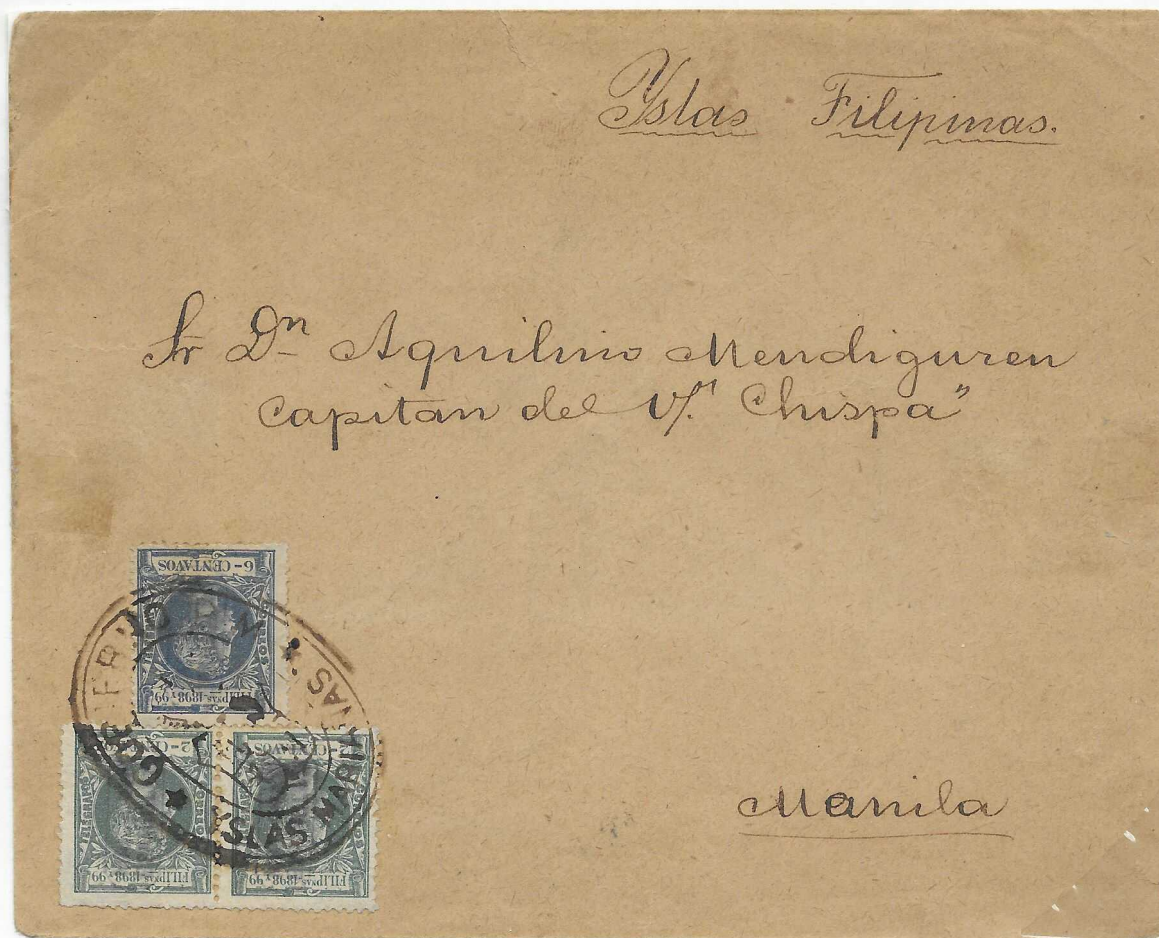 Yslas Filipinas.
Sr Dn Aquilino Mendiguren
Capitan del V/. "Chispa"
Manila
6-CENTAVOS
CORREOS
FILIPNAS-1898 Y 99
2-CE
CENTAVOS
FILIPNAS-1898 Y 99
FILIPNAS-1898 Y 99
YSLAS MARIANAS